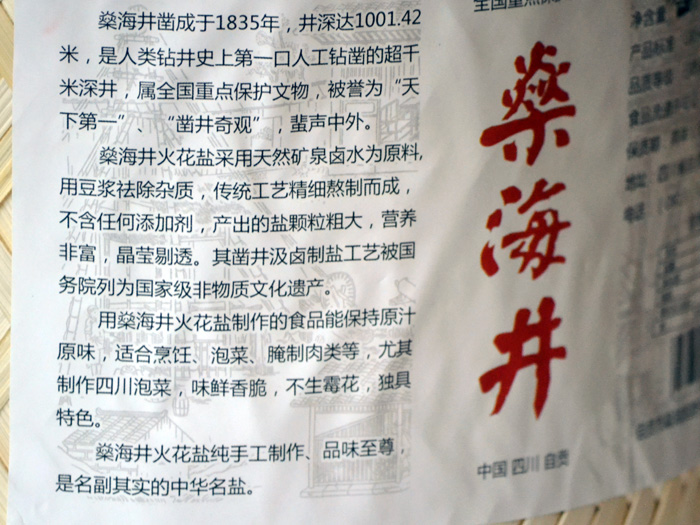 燊海井凿成于1835年，井深达1001.42
米，是人类钻井史上第一口人工钻凿的超千
米深井，属全国重点保护文物，被誉为“天
下第一”、“凿井奇观”，蜚声中外。
燊海井火花盐采用天然矿泉卤水为原料，
用豆浆祛除杂质，传统工艺精细熬制而成，
不含任何添加剂，产出的盐颗粒粗大，营养
非富，晶莹剔透。其凿井汲卤制盐工艺被国
务院列为国家级非物质文化遗产。
用燊海井火花盐制作的食品能保持原汁
原味，适合烹饪、泡菜、腌制肉类等，尤其
制作四川泡菜，味鲜香脆，不生霉花，独具
特色。
燊海井火花盐纯手工制作、品味至尊，
是名副其实的中华名盐。
全国重点
燊海井
中国 四川 自贡
净含量
产品标准
品质等级
食品生产许可
保质期
地址
电话